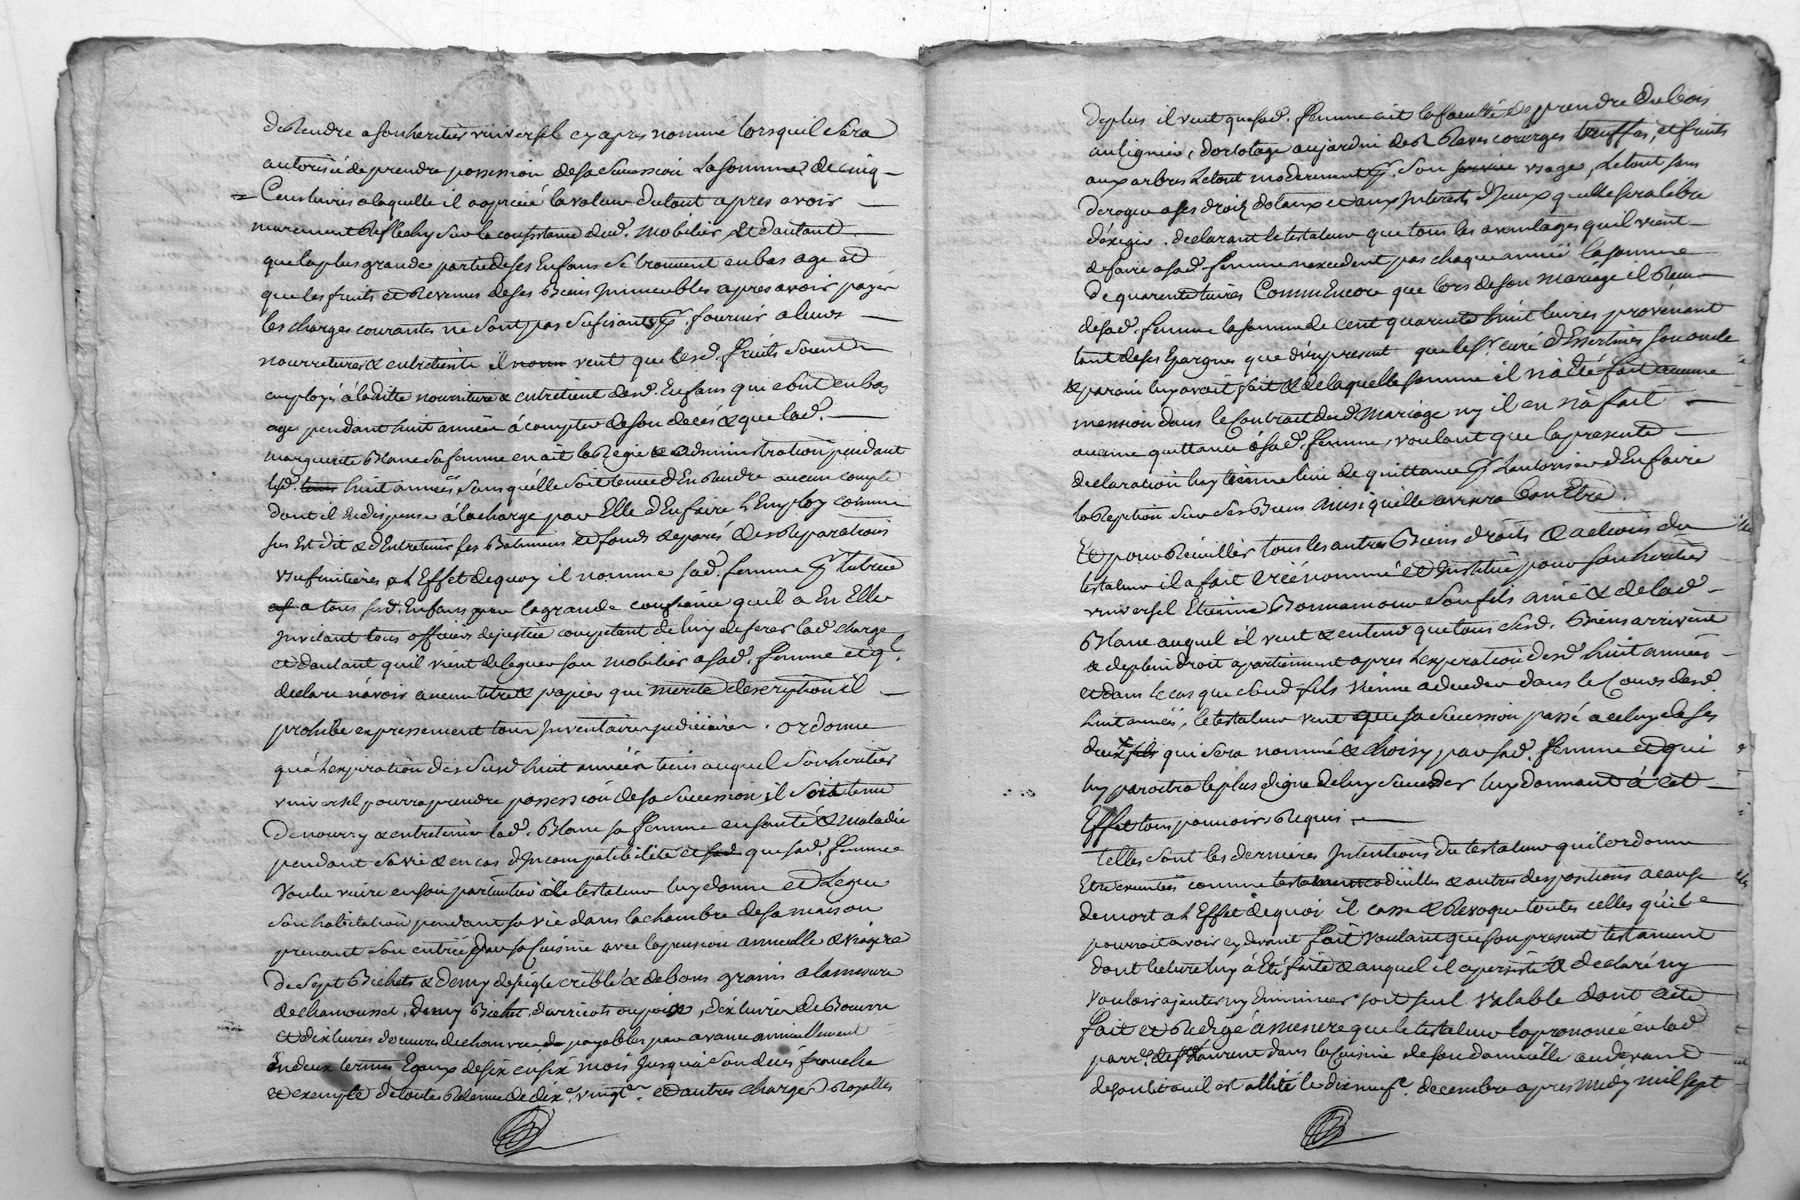 de Rendre a son heritier universel cy apres nommé lors quil sera
autorisé de prendre possession de sa sucession la somme de cinq
Cens livres a laquelle il a apprecié la valeur du tout apres avoir
murement Reflechy sur la consistance dud. mobilier, Et dautant
que la plus grande partie de ses Enfans se trouvent en bas age et
que les fruits et Revenus de ses Biens Immeubles apres avoir payer
les charges courantes ne sont pas sufisants pr. fournir a leurs
nourritures & entretients il veut que lesd. fruits soient
employés á laditte nourriture & entretient desd. Enfans qui sont en bas
age pendant huit années á compter de son decés & que lad.
marguerite Blanc sa femme en ait la Regie & administration pendant
lesd. huit années sans quélle soit tenue dEn Rendre aucun compte
dont il la dispense á la charge par Elle dEn faire lEmploy comme
sus Est dit & dEntretenir ses Batimens et fonds & parés des Reparations
usufruitieres a lEffet de quoy il nomme sad. femme pr tutrice
a tous sesd. Enfans par la grande confiance quil a En Elle
Invitant tous officiers de justice competant de luy deferer lad. charge
et dautant quil vient de leguer son mobilier a sad. femme et ql.
declare nàvoir aucun titre & papier qui merite description il
prohibe expressement tout Inventaire judiciaire. ordonne
quá lexpiration des susd. huit années tems auquel son heritier
universel pourra prendre possession de sa sucession il soit tenu
de nourry & entretenir lad. Blanc sa femme en santé & maladie
pendant sa vie & en cas dIncompatibilité et que sad. femme
voulu vivre en son particulier le testateur luy donne et Legue
son habitation pendant sa vie dans la chambre de sa maison
prenant son entrée par sa cuisine avec la pension annuelle & viagere
de sept Bichets & demy de seigle criblé & de bons grains a la mesure
de chamousset, demy Bichet darricots ou pois, dix livres de Beurre
et dix livres doeuvres de chanvre payables par avance annuellement
En deux termes Egaux de six en six mois jusquá son decés franche
et exempte de toutes Retenue de dixe. vingte. et autres charges Royalles
de plus il veut que sad. femme ait la faculté de prendre du bois
au lignier, dortolage au jardin des Raves courges truffes, et fruits
aux arbres le tout moderement pr. son usage, le tout sans
deroger a ses droits dotaux et aux Interests diceux quelle sera libre
dexiger. declarant le testateur que tous les avantages quil vient
de faire a sad. femme nexcedent pas chaque année la somme
de quarente livres Comm Encore que lors de son mariage il Recu
de sad. femme la somme de cent quarente huit livres provenant
tant de ses Epargnes que dun present que le Sr. curé dEssertines son oncle
& parain luy avoit fait & de laquelle somme il nà Eté fait aucune
mension dans le Contrait dud. Mariage ny il en nà fait
aucune quittance á sad. femme, voulant que la presente
declaration luy tienne lieu de quittance pr lautoriser dEn faire
la Reption sur ses Biens ainsi quélle avisera bon Etre.
Et pour Reuillir tous les autres Biens droits & actions du
testateur il a fait créé nommé et Institué pour son heritier
universel Etienne Bonnamour son fils ainé & de lad.
Blanc auquel il veut & entend que tous sesd. Biens arrivent
& de plein droit apartiennent apres lexpiration desd. huit années
et dans le cas que sond. fils vienne a deceder dans le Cours desd.
huit années, le testateur veut que sa sucession passé a celuy de ses
qui sera nommé & choisy par sad. femme et qui
luy paroitra le plus digne de luy succeder luy donnant á cet
Effet tous pouvoirs Requis.
Telles sont les dernieres Intentions du testateur quil ordonne
Etre executées comme testament codicilles & autres dispositions a cause
de mort a lEffet de quoi il casse & Revoque toutes celles quil
pourroit avoir cy devant fait voulant que son present testament
dont lecture luy á Eté faite & auquel il a persisté & declaré ny
vouloir ajouter ny diminuer soit seul valable dont acte
fait et Redigé á mesure que le testateur la prononcé en lad.
parre. de St Laurent dans la Cuisine de son domicille au devant
de son lit ou il est allité le dix neufe. decembre apres midy mil sept